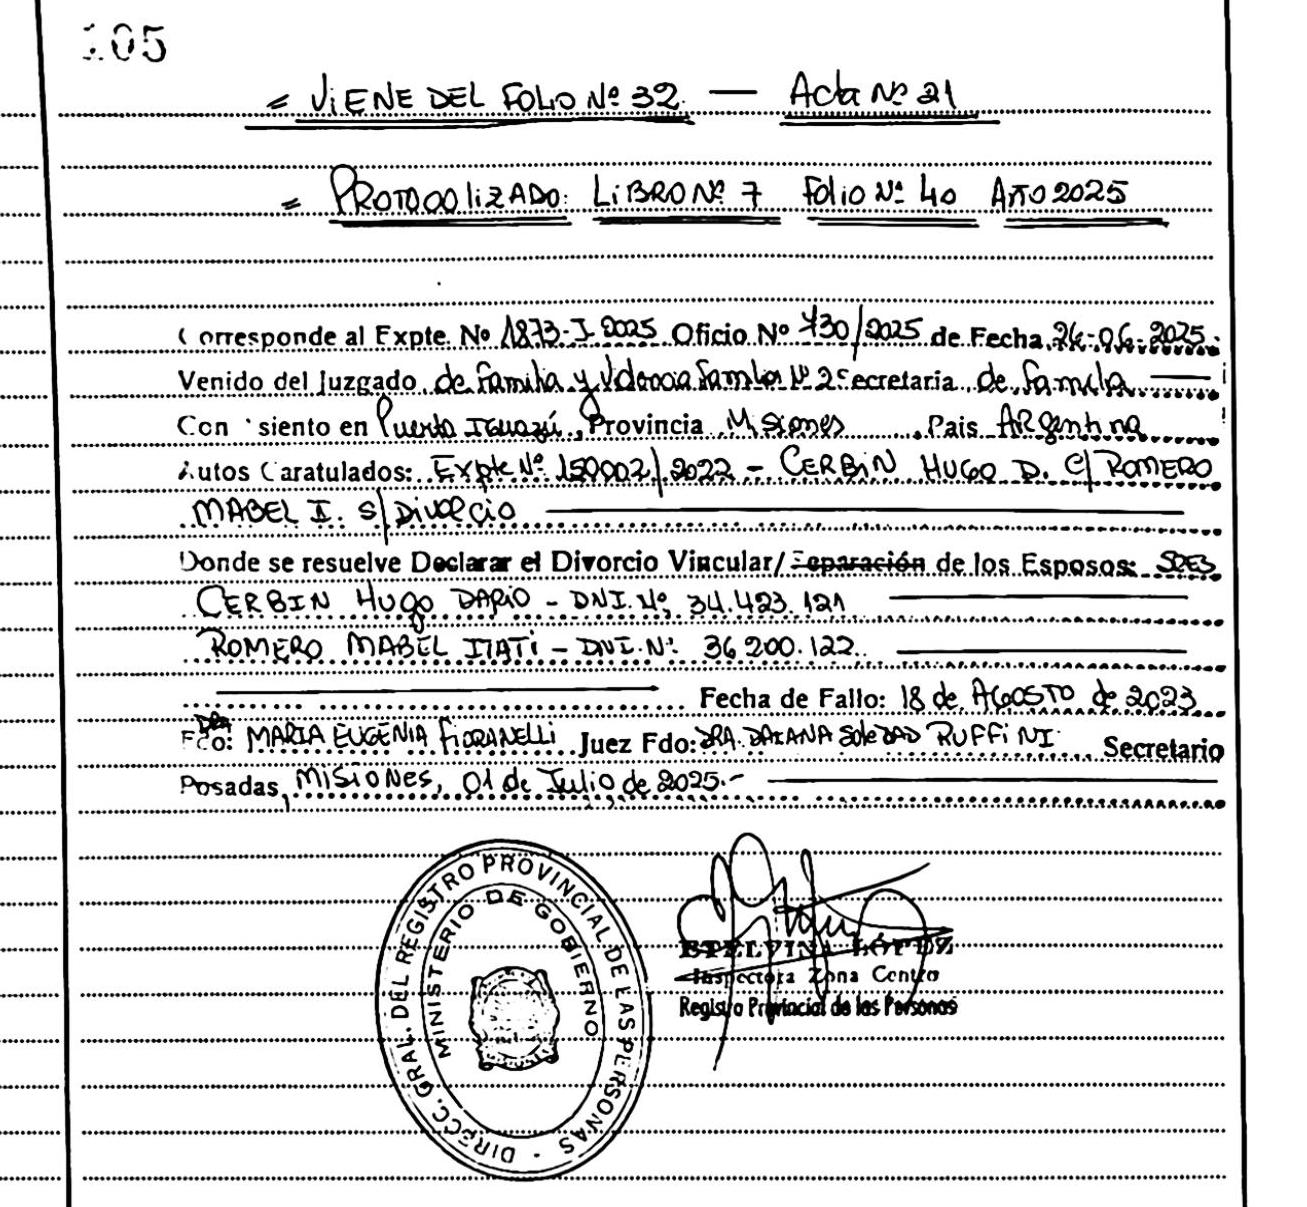 105
= ViENE DEL FOLIO Nº 32 — Acta Nº 21
= PROTOCOLIZADO: LiBRO Nº 7 Folio Nº 40 AÑO 2025
Corresponde al Expte. Nº 1873-I-2025 Oficio Nº 730/2025 de Fecha 26-06-2025.
Venido del Juzgado de familia y Violencia familiar Nº 2 Secretaria de familia
Con siento en Puerto IGuazú, Provincia Misiones, Pais ARgentina
Autos Caratulados: Expte Nº 150002/2022 - CERBiN HUGO D. C/ ROMERO
MABEL I. S/ Divorcio
Donde se resuelve Declarar el Divorcio Vincular/Separación de los Esposos: SRES
CERBIN HUGO DARIO - DNI. Nº, 34.423.121
ROMERO MABEL ITATi - DNI. Nº 36 200.122.
Fecha de Fallo: 18 de AGOSTO de 2023
Fdo: DRA MARIA EUGENIA FIORANELLi Juez Fdo: DRA. DAIANA SoleDAD RUFFiNI Secretario
Posadas, MISIONES, 01 de Julio de 2025.-
DIRECC. GRAL. DEL REGISTRO PROVINCIAL DE LAS PERSONAS -
MINISTERIO DE GOBIERNO
ETELVINA LÓPEZ
Inspectora Zona Centro
Registro Provincial de las Personas